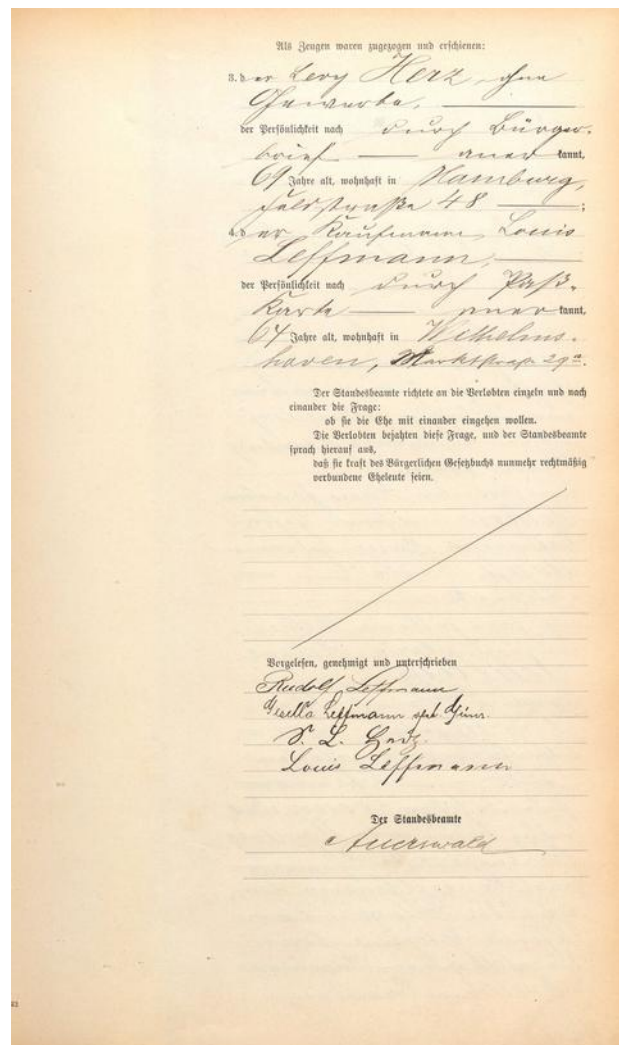 Als Zeugen waren zugezogen und erschienen:
3. der Levy Herz, ohne
Gewerbe,
der Persönlichkeit nach durch Bürger-
brief anerkannt,
69 Jahre alt, wohnhaft in Hamburg,
Feldstraße 48;
4. der Kaufmann Louis
Leffmann,
der Persönlichkeit nach durch Paß-
karte anerkannt,
64 Jahre alt, wohnhaft in Wilhelms-
haven, Marktstraße 29a.
Der Standesbeamte richtete an die Verlobten einzeln und nach
einander die Frage:
ob sie die Ehe mit einander eingehen wollen.
Die Verlobten bejahten diese Frage, und der Standesbeamte
sprach hierauf aus,
daß sie kraft des Bürgerlichen Gesetzbuchs nunmehr rechtmäßig
verbundene Eheleute seien.
Vorgelesen, genehmigt und unterschrieben
Rudolf Leffmann
Leffmann geb.
S. L. Herz.
Louis Leffmann
Der Standesbeamte
Auerswald